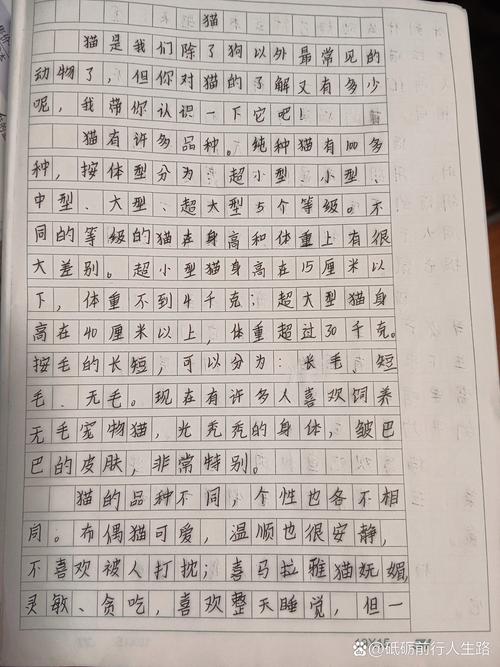 猫
猫是我们除了狗以外最常见的
动物了，但你对猫的了解又有多少
呢，我带你认识一下它吧！
猫有许多品种。纯种猫有100多
种，按体型分为：超小型、小型、
中型、大型、超大型5个等级。不
同的等级的猫在身高和体重上有很
大差别。超小型猫身高在15厘米以
下，体重不到4千克；超大型猫身
高在40厘米以上，体重超过30千克。
按毛的长短，可以分为：长毛、短
毛、无毛。现在有许多人喜欢饲养
无毛宠物猫，光秃秃的身体，皱巴
巴的皮肤，非常特别。
猫的品种不同，个性也各不相
同。布偶猫可爱，温顺也很安静，
不喜欢被人打扰；喜马拉雅猫妩媚，
灵敏、贪吃，喜欢整天睡觉，但一
@砥砺前行人生路